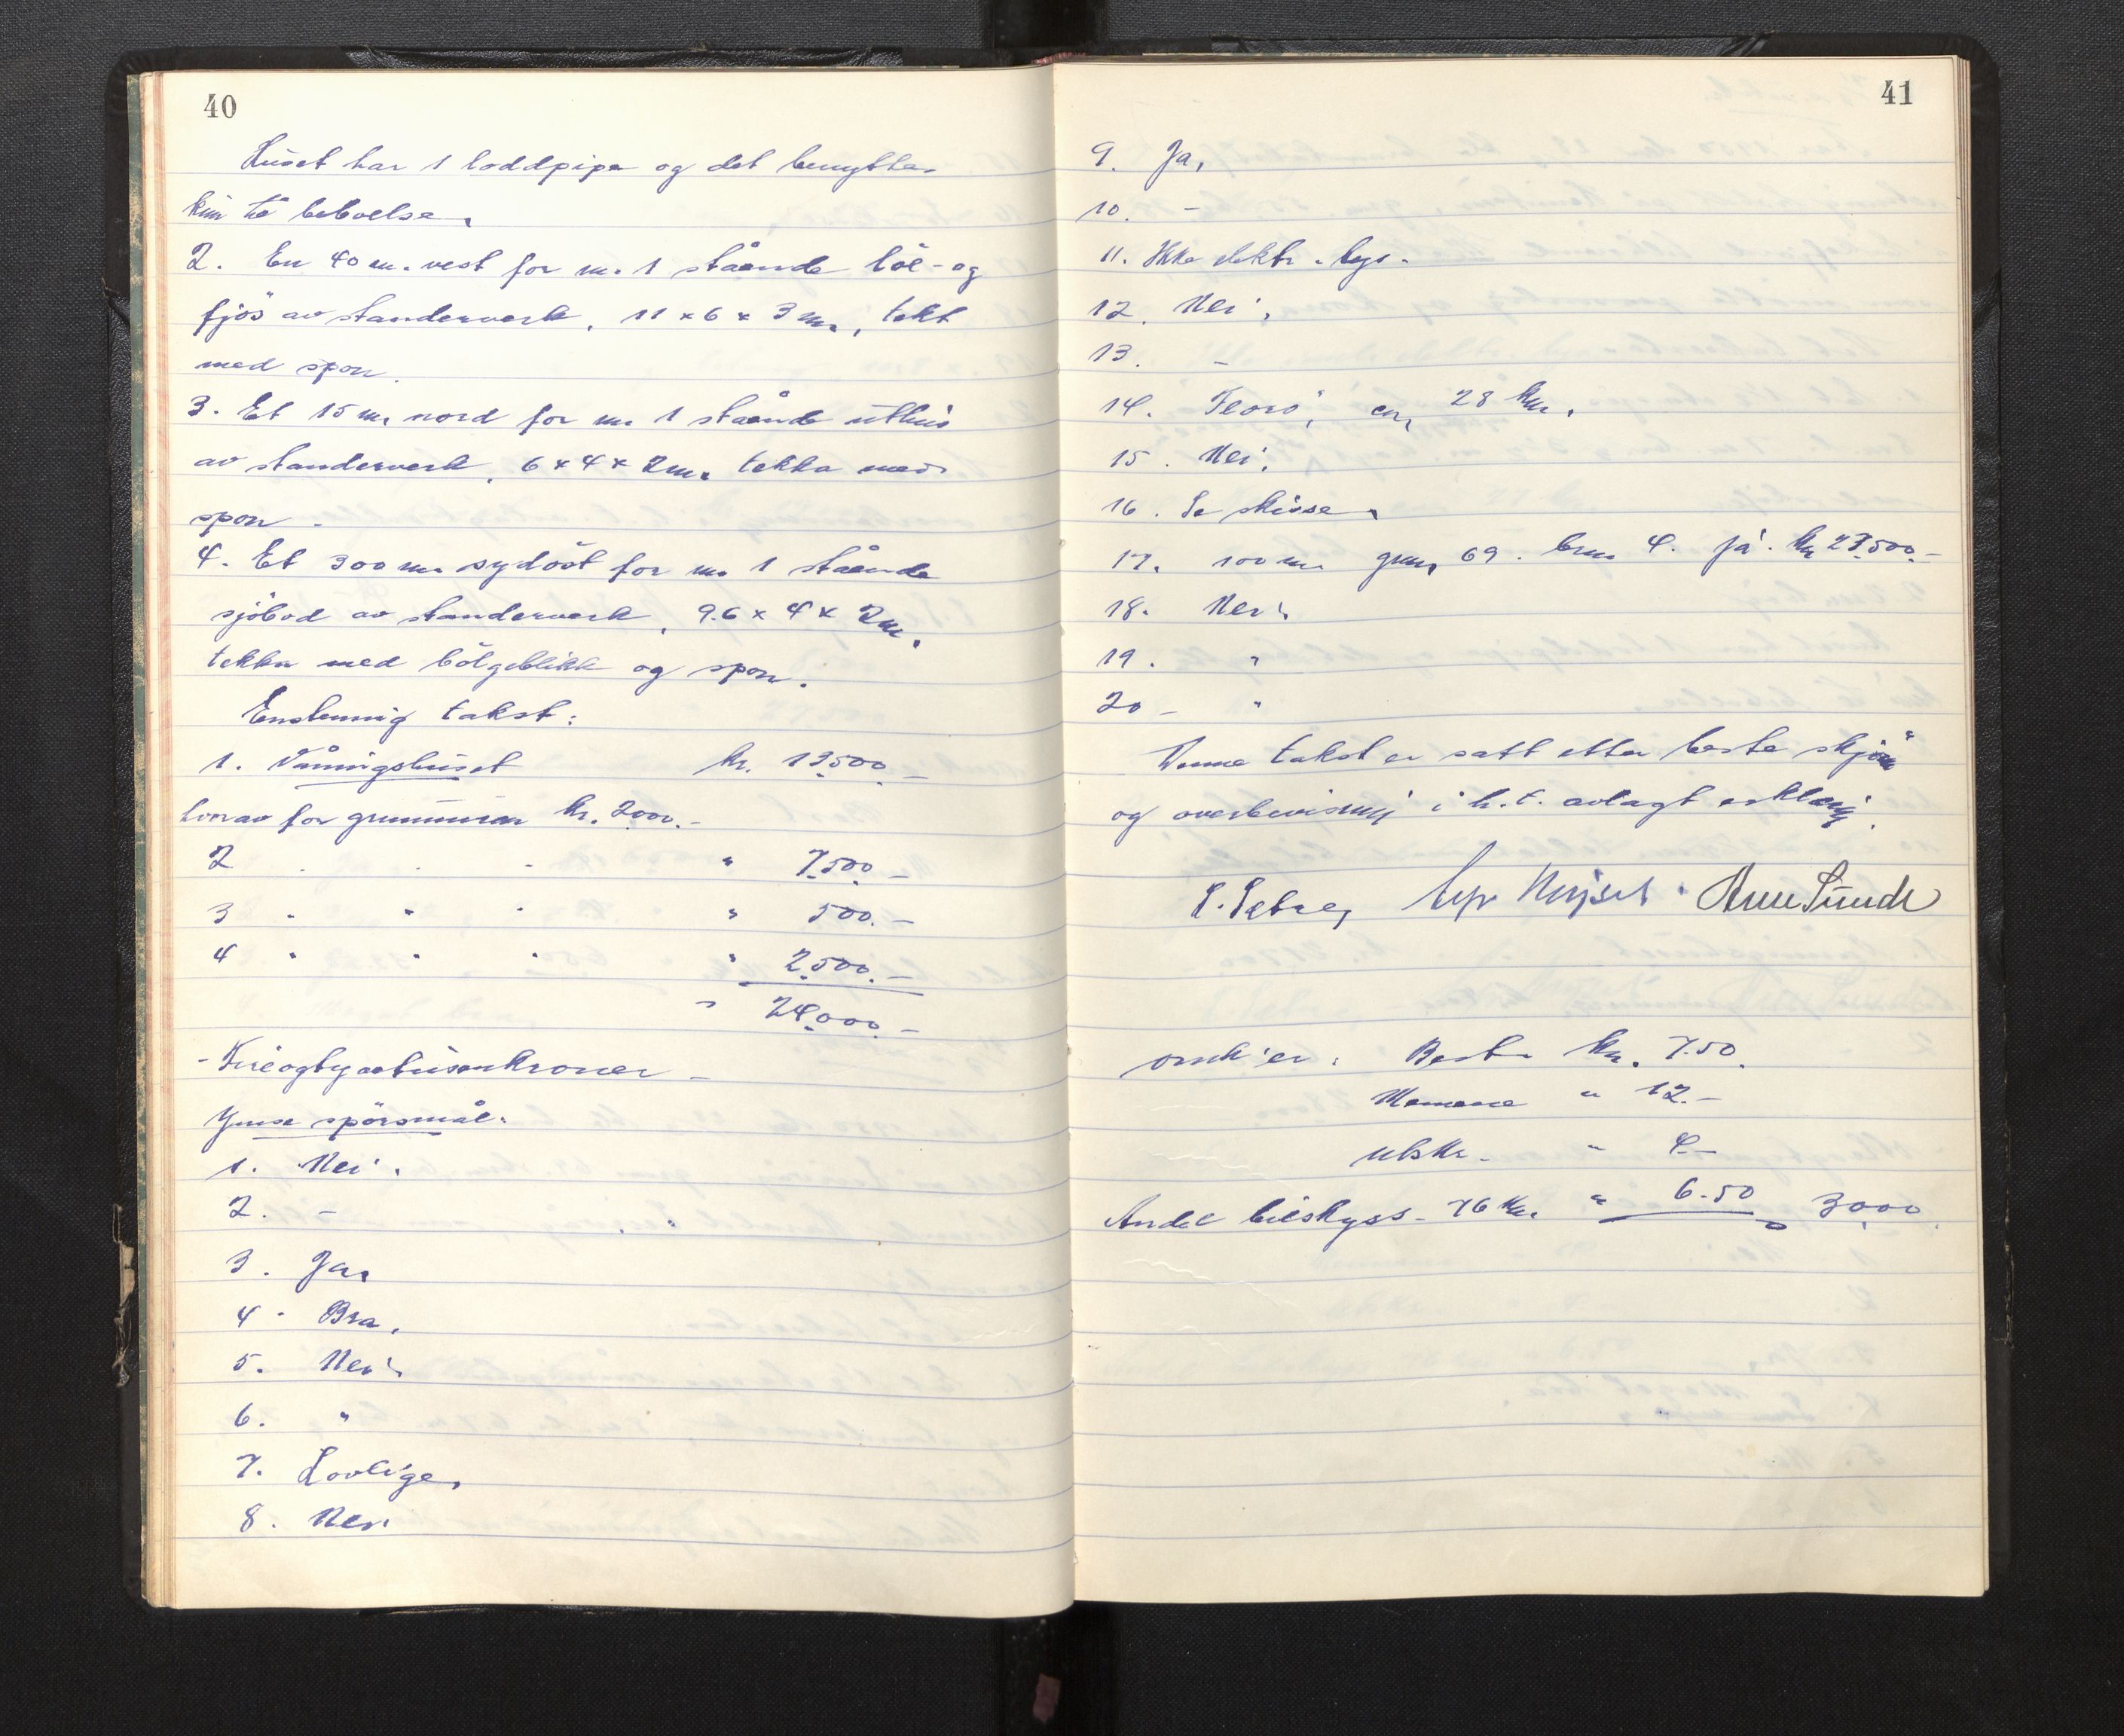 40
Huset har 1 loddpipe og det benyttes
kun til beboelse.
2. En 40 m. vest for nr. 1 stående löe- og
fjös av standerverk, 11 x 6 x 3 m., tekt
med spon.
3. Et 15 m. nord for nr. 1 stående uthus
av standerverk, 6 x 4 x 2 m. tekka med
spon.
4. Et 300 m. sydöst for nr. 1 stående
sjöbod av standerverk, 9.6 x 4 x 2 m.
tekka med bölgeblikk og spon.
Enstemmig takst:
1. Våningshuset kr. 13.500.-
hvorav for grunnmur kr. 2000.-
2 . . . " 7.500.-
3 " " " " 500.-
4 " " " " 2.500.-
" 24.000.-
- Fireogtyvetusenkroner -
Ymse spörsmål.
1. Nei.
2. -
3. Ja.
4. Bra.
5. Nei.
6. "
7. Lovlige.
8. Nei
41
9. Ja.
10. -
11. Ikke elektr. lys.
12. Nei.
13. -
14. Florö, ca. 28 km.
15. Nei.
16. Se skisse.
17. 100 m. gnr. 69. bnr. 4. få. kr 23.500.-
18. Nei.
19. "
20 - "
Denne takst er satt etter beste skjönn
og overbevisning i h.t. avlagt erklæring.
Arne Sunde
omk'er: Best. kr. 7.50.
Mennene " 12.-
utskr. - " 4.-
Andel bilskyss - 76 km. " 6.50 30.00.